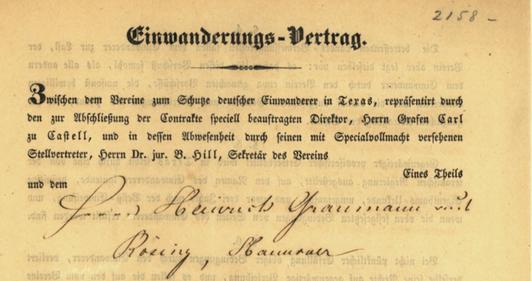 2158-
Einwanderungs-Vertrag.
Zwischen dem Vereine zum Schutze deutscher Einwanderer in Texas, repräsentirt durch
den zur Abschließung der Contrakte speciell beauftragten Direktor, Herrn Grafen Carl
zu Castell, und in dessen Abwesenheit durch seinen mit Specialvollmacht versehenen
Stellvertreter, Herrn Dr. jur. B. Hill, Sekretär des Vereins
Eines Theils
und dem
Heinrich Graumann
Rösing, Hannover